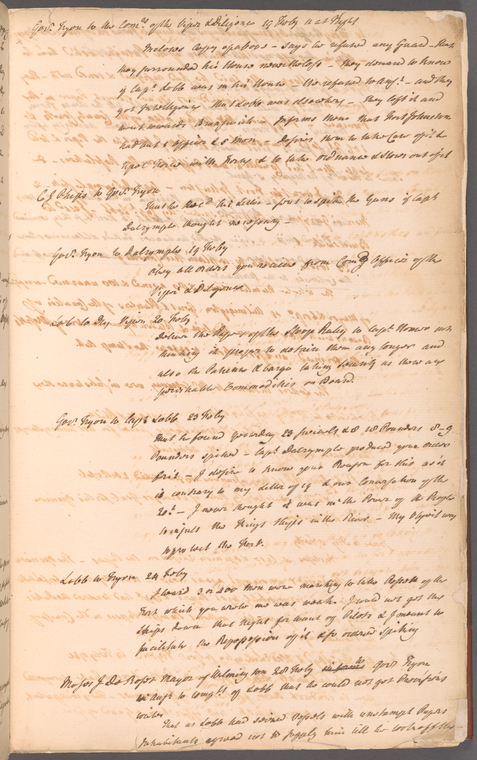 Govr. Tryon to the Comrs. of the Viper & Diligence 19 Feby 11 at Night
Incloses Copy of above - Says he refused any Guard - that
they surrounded his House nevertheless - they demand to know
if Capt. Lobb was in his House - He refused to Ansr. - and they
got Intelligence that Lobb was elsewhere - They left it and
went towards Brunswick - Informs them that Fort Johnston
had but 1 officer & 5 Men - Desires them to take Care of it &
Repel Force with Force & to take Ordnance & Stores out of it
C. J. Phipps to Govr. Tryon
that he Recd. his Letter - sent to spike the Guns if Capt
Dalrymple thought necessary -
Govr. Tryon to Dalrymple 19 Feby
Obey all Orders you receive from Comg Officer of the
Viper & Diligence
Lobb to Dry 20 Feby
Deliver the Papers of the Sloop Ruby to Captn.
thinking it proper to detain them any longer and
also the Patience & Cargo taking Security as there are
perishable Commodities on Board.
Govr. Tryon to Capt Lobb 23 Feby
that he found yesterday 23 Swivels & 8 18 Pounders & 9
Pounders spiked - Capt. Dalrymple produced your Orders
for it - I desire to know your Reason for this as it
is contrary to my Letter of 19 & our Conversation of the
20th. - I never thought it was in the Power of the People
to insult the Kings Ships in the River - My Object was
to protect the Fort.
Lobb to Tryon 24 Feby
I heard 3 or 400 Men were marching to take Possn. of the
Fort which you wrote me was weak. I could not get the
Ships down that Night for want of Pilots & I meant to
facilitate the Repossession of it & so ordered Spiking
Moses J. De Rosset Mayor of Wilmington 28 Feby Govr Tryon
in Ansr to Complt. of Lobb that he could not get Provisions
writes
that as Lobb had seized Vessels with unstampt Papers
Inhabitants agreed not to supply him till he took off the